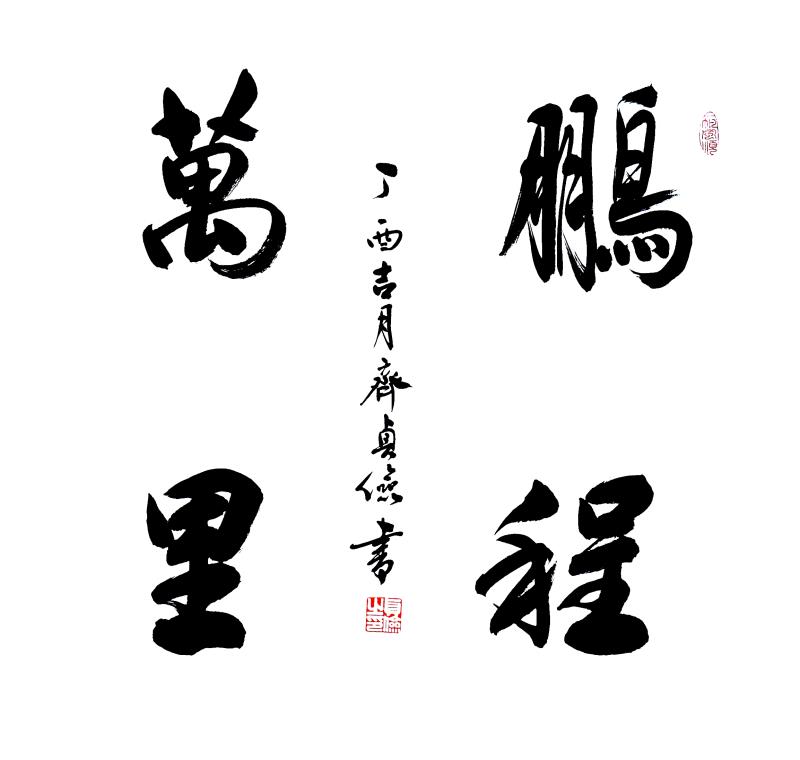 鵬程
萬里
丁酉吉月齊貞儉書